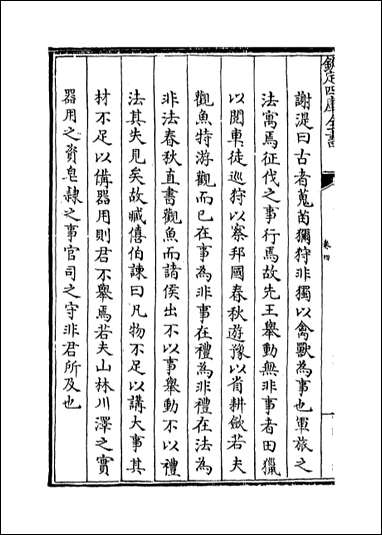 欽定四庫全書
卷四
謝湜曰古者蒐苗獮狩非獨以禽獸為事也軍旅之
法寓焉征伐之事行焉故先王舉動無非事者田獵
以閱車徒巡狩以察邦國春秋遊豫以省耕斂若夫
觀魚特游觀而已在事為非事在禮為非禮在法為
非法春秋直書觀魚而諸侯出不以事舉動不以禮
法其失見矣故臧僖伯諫曰凡物不足以講大事其
材不足以備器用則君不舉焉若夫山林川澤之實
器用之資皂隸之事官司之守非君所及也